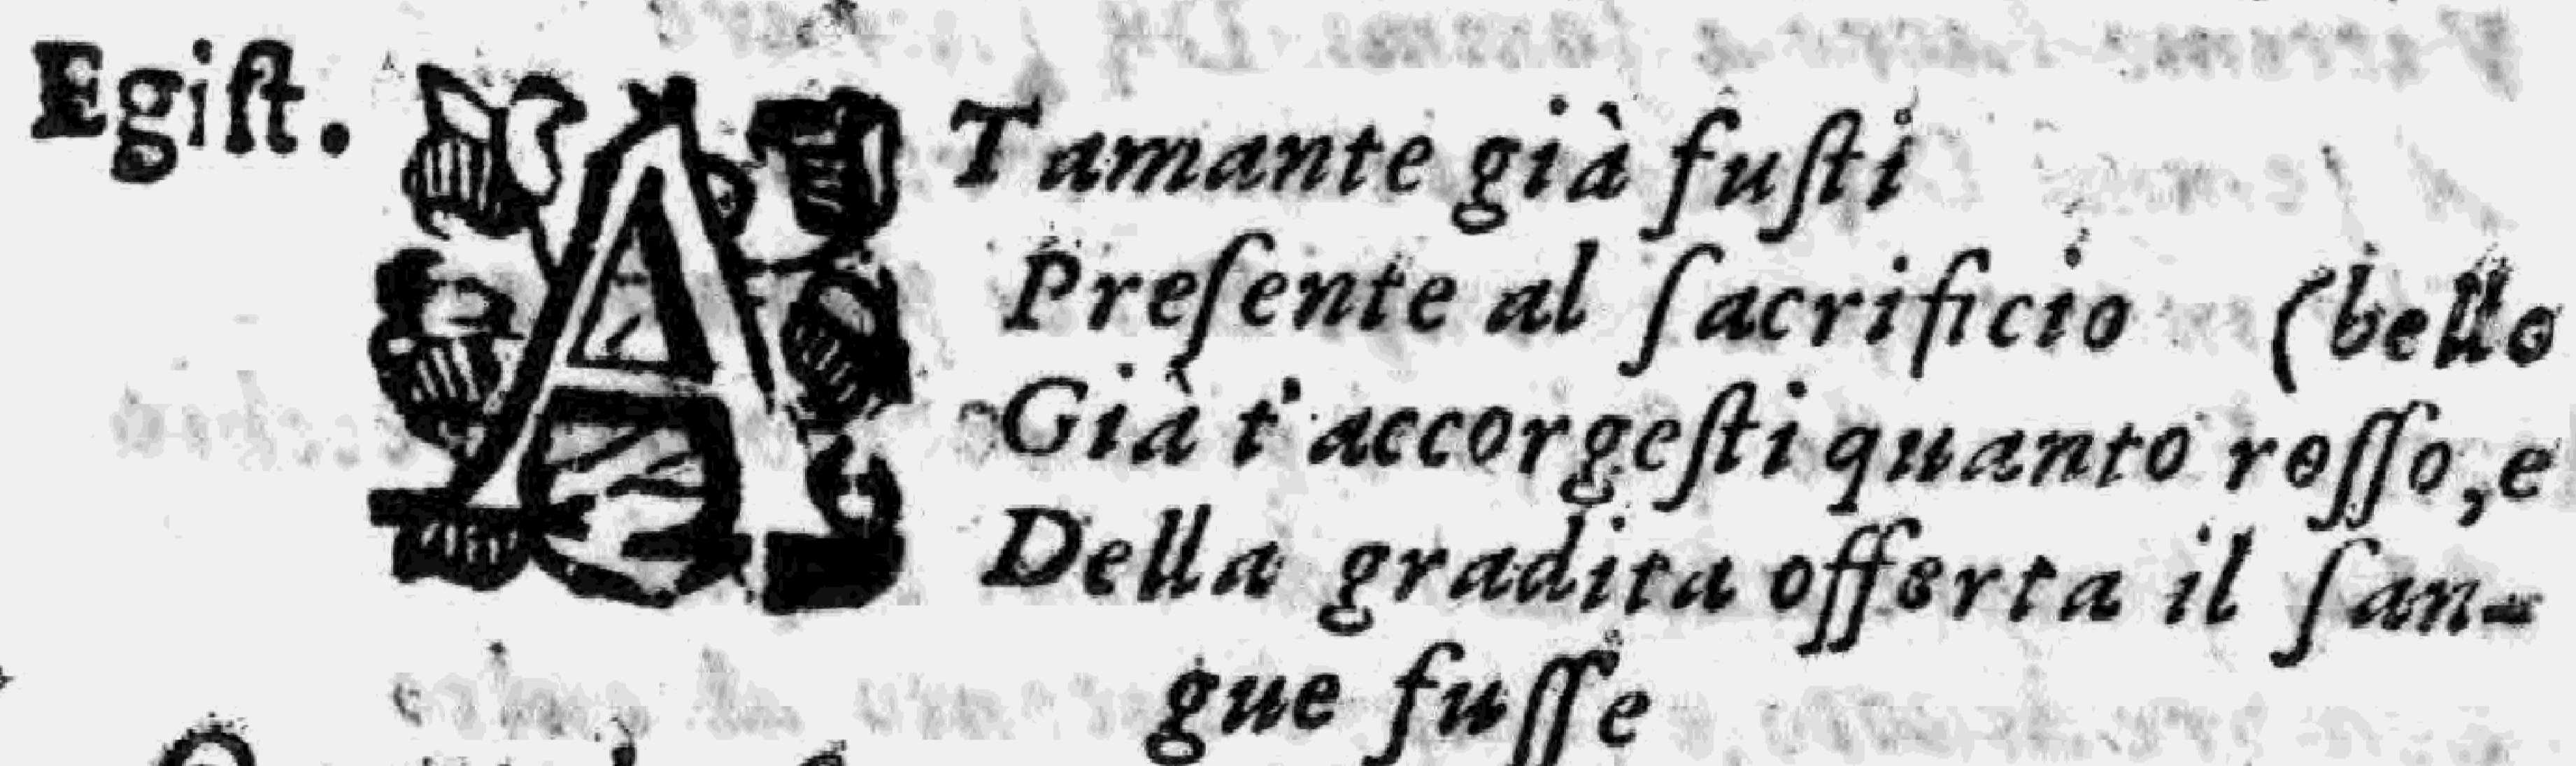 Egiſt. ATamante già fuſti
Preſente al ſacrificio (bello
Già t'accorgeſti quanto roſſo, e
Della gradita offerta il ſan-
gue fuſſe